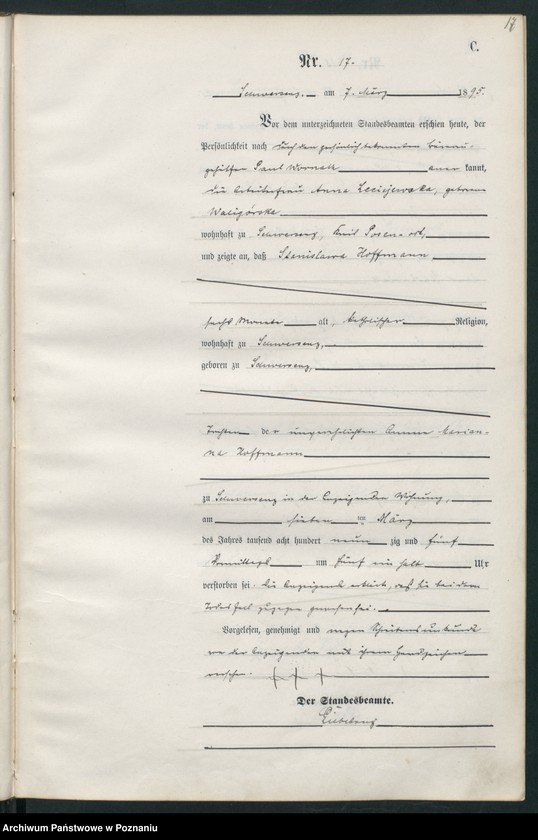 17
C.
Nr. 17.
Schwersenz am 7. März 1895.
Vor dem unterzeichneten Standesbeamten erschien heute, der
Persönlichkeit nach durch den persönlich bekannten Büreau-
gehilfen Paul Wornatt anerkannt,
die Arbeiterfrau Anna Leciejewska, geborene
Waligórska
wohnhaft zu Schwersenz, Kreis Posen-Ost,
und zeigte an, daß Stanislawa Hoffmann
sechs Monate alt, katholischer Religion,
wohnhaft zu Schwersenz,
geboren zu Schwersenz,
Tochter der unverehelichten Amme Marian-
na Hoffmann
zu Schwersenz in der Anzeigenden Wohnung,
am siebenten März
des Jahres tausend acht hundert neunzig und fünf
Vormittags um fünf ein halb Uhr
verstorben sei. Die Anzeigende erklärt, daß sie bei dem
Todesfall zugegen gewesen sei.
Vorgelesen, genehmigt und wegen Schreibensunkunde
von der Anzeigenden mit ihrem Handzeichen
versehen. +++
Der Standesbeamte.
Archiwum Państwowe w Poznaniu